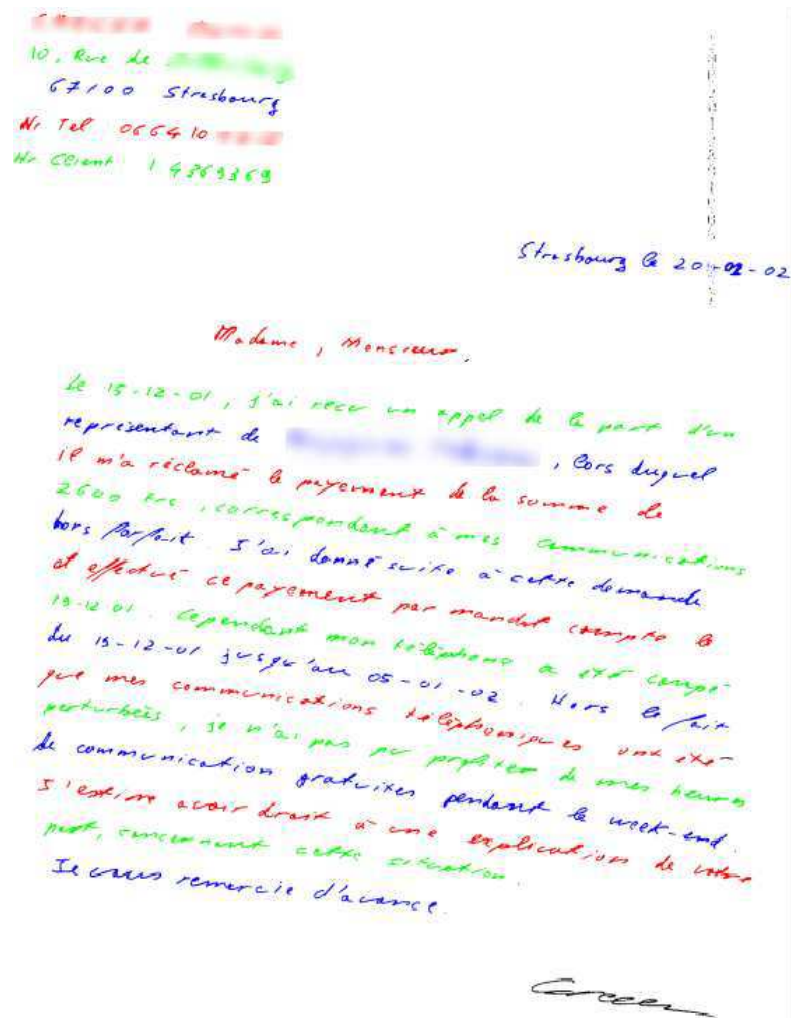 10, Rue de
67100 Strasbourg
Nr Tel 066410
Nr Client 14369369
Strasbourg le 20-02-02
Madame, Monsieur,
Le 15-12-01, j'ai recu un appel de la part d'un
représentant de , lors duquel
il m'a réclamé le payement de la somme de
2600 frs, correspondant à mes communications
hors forfait. J'ai donné suite à cette demande
et effectué ce payement par mandat compte le
19-12 01. Cependant mon téléphone a été coupé
du 15-12-01 jusqu'au 05-01-02. Hors le fait
que mes communications téléphoniques ont été
perturbées, je n'ai pas pu profiter de mes heures
de communication gratuites pendant le week-end.
J'estime avoir droit à une explication de votre
part, concernant cette situation.
Je vous remercie d'avance.